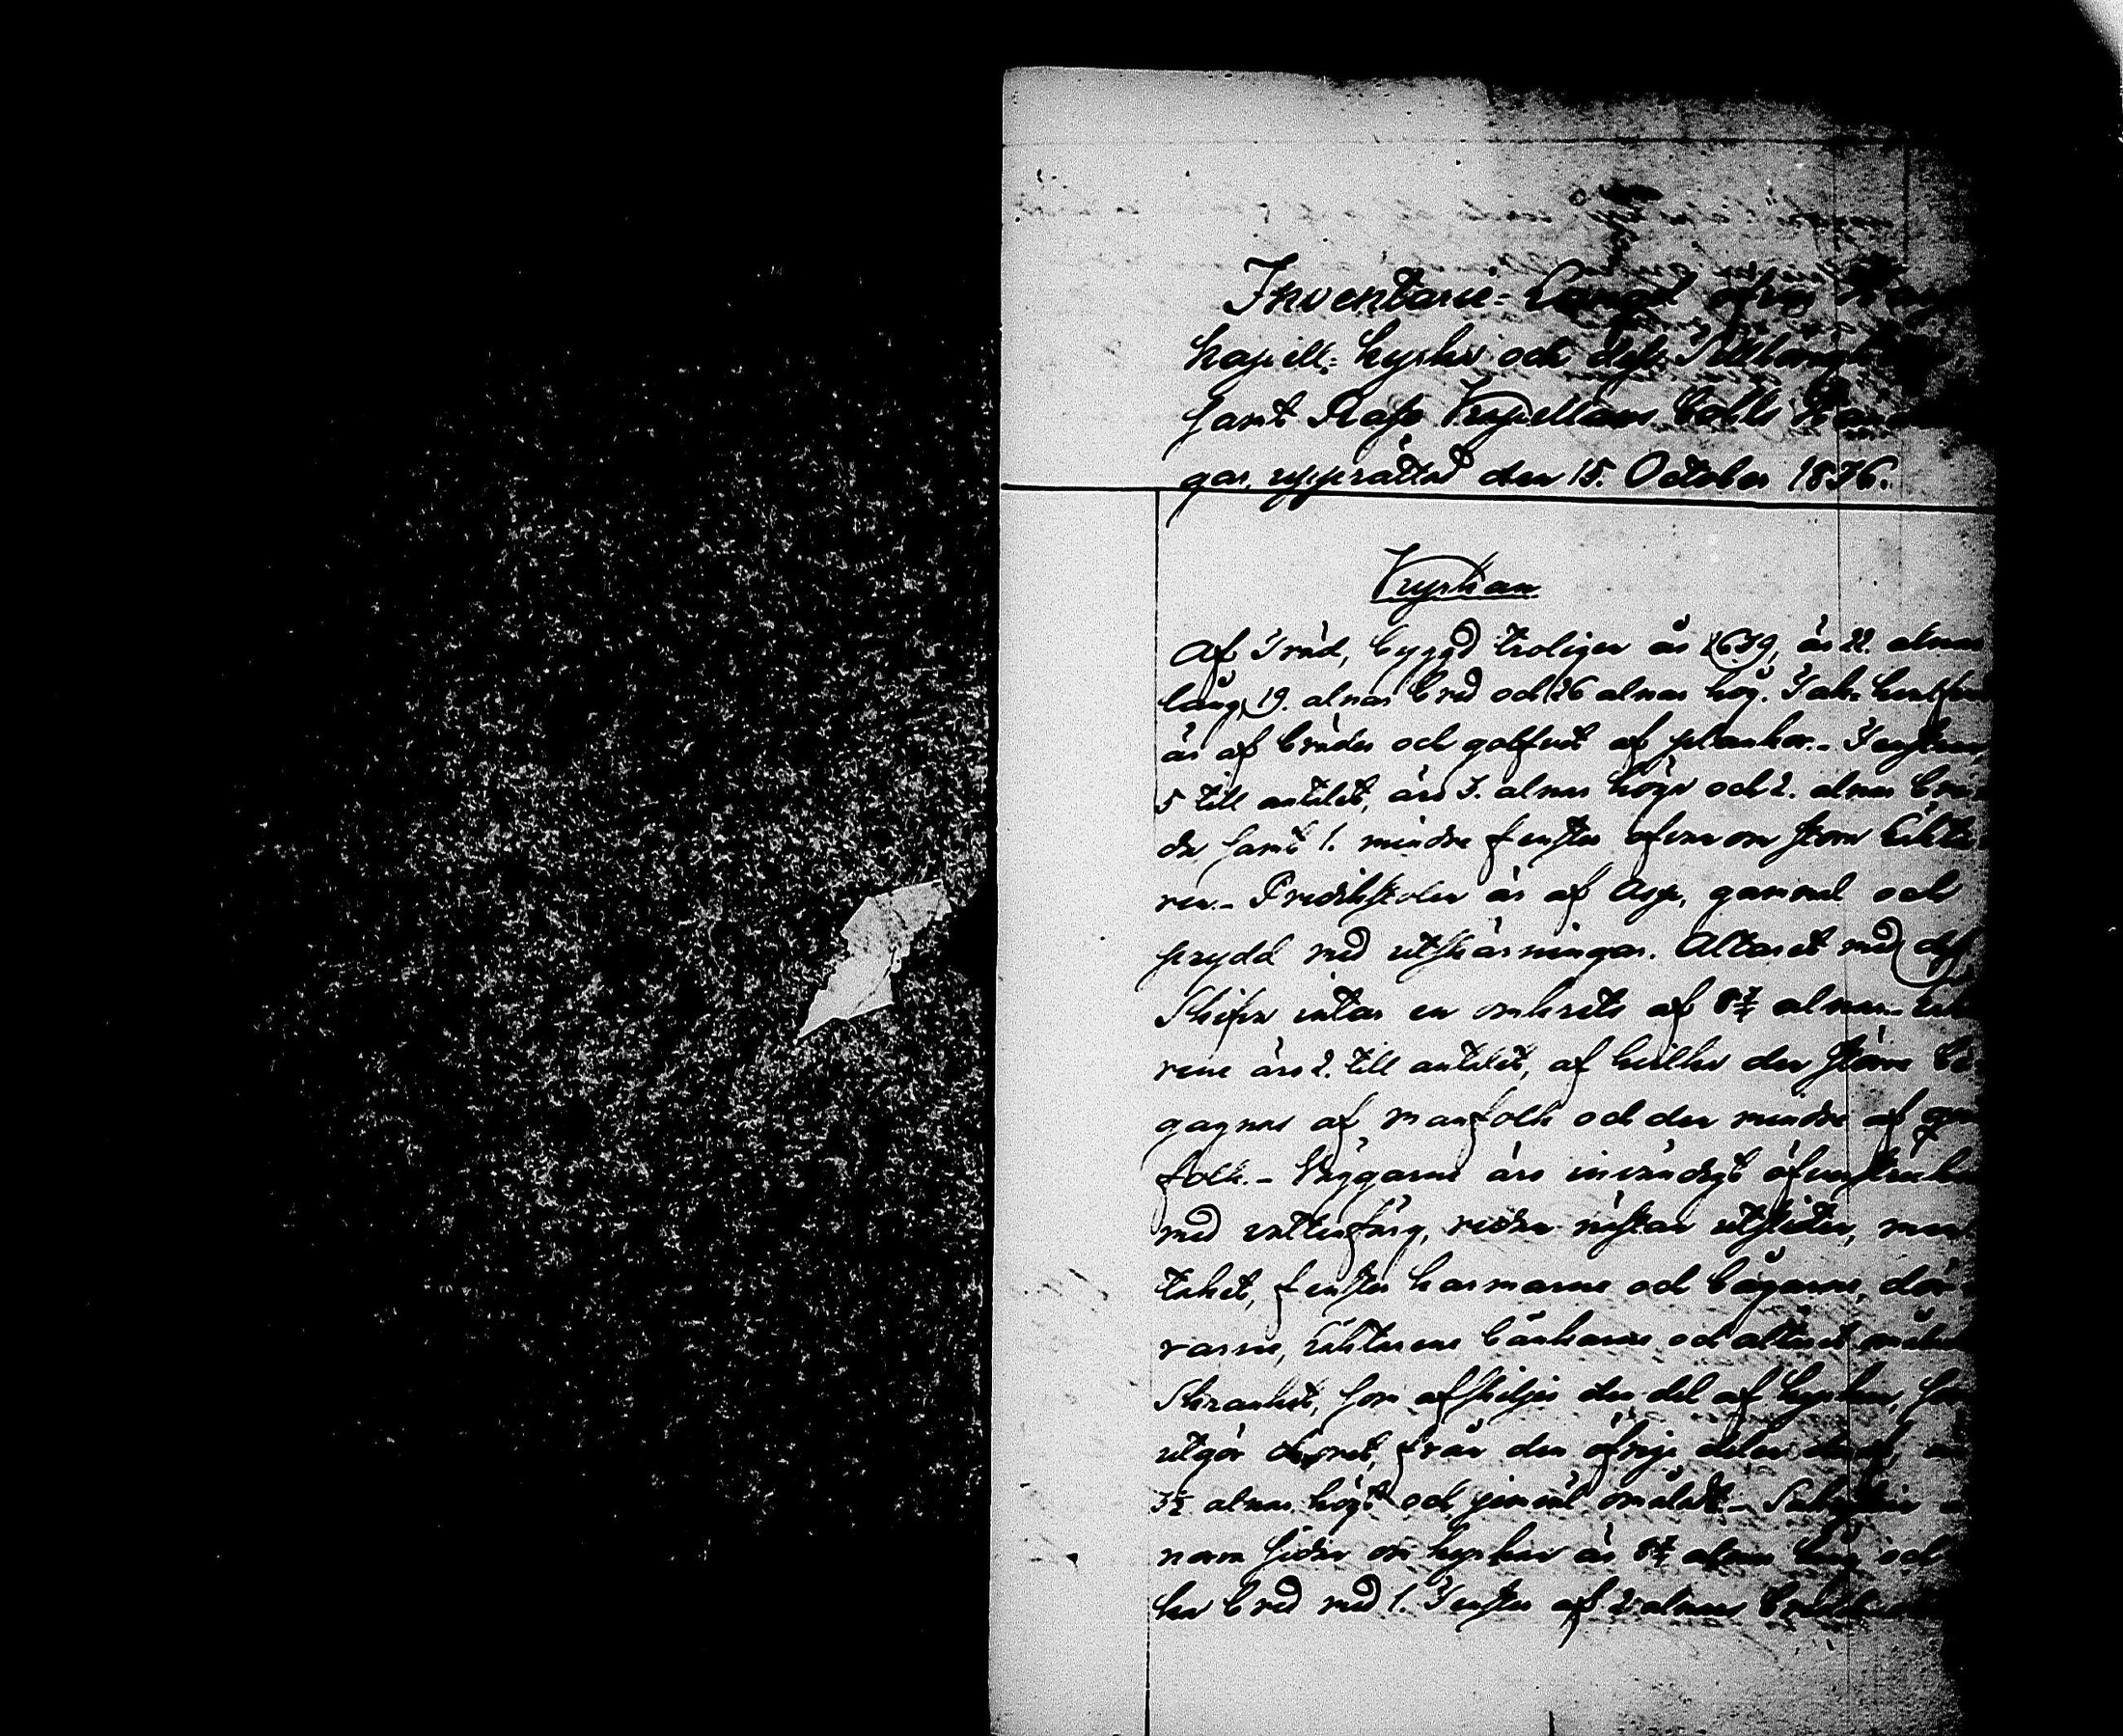 Inventarie-Längd öfver
kapell-kyrka och dess Tillhörig
samt Näse Capellans Bohls
gar, upprättad den 15. October 1836.
Kyrkan
Af Träd, byggd troligen år 1639, är 22. alnar
lång, 19. alnar bred och 16 alnar hög.
är af bräder och golfvet af plankor. Fenstren,
5 till antalet, äro 3. alnar höga och 2. alnar bre
da samt 1. mindre fenster ofvan om stora Läkta
ren. Predikstolen är af Asp, gammal och
prydd med utskärningar. Altaret med dess
Skifva intar en omkrets af 8¾ alnar. Läkta
rene äro 2. till antalet, af hvilka den större be
gagnas af manfolk och den mindre af qvin
folk. Väggarne äro invändigt öfverstrukna
med vattenfärg, redan nästan utsliten, men
taket, fenster karmarne och bågarne, dör
rarne, Läktarene bänkarne och altaret målade
Skranket, som afskiljer den del af kyrkan, som
utgör choret, från den öfrige delen deraf, är
3½ alnar högt och jemväl omåladt. Sakristian
norra sidan om kyrkan är 8¾ alnar lång och
ka bred med 1. Fenster af 2 alnars